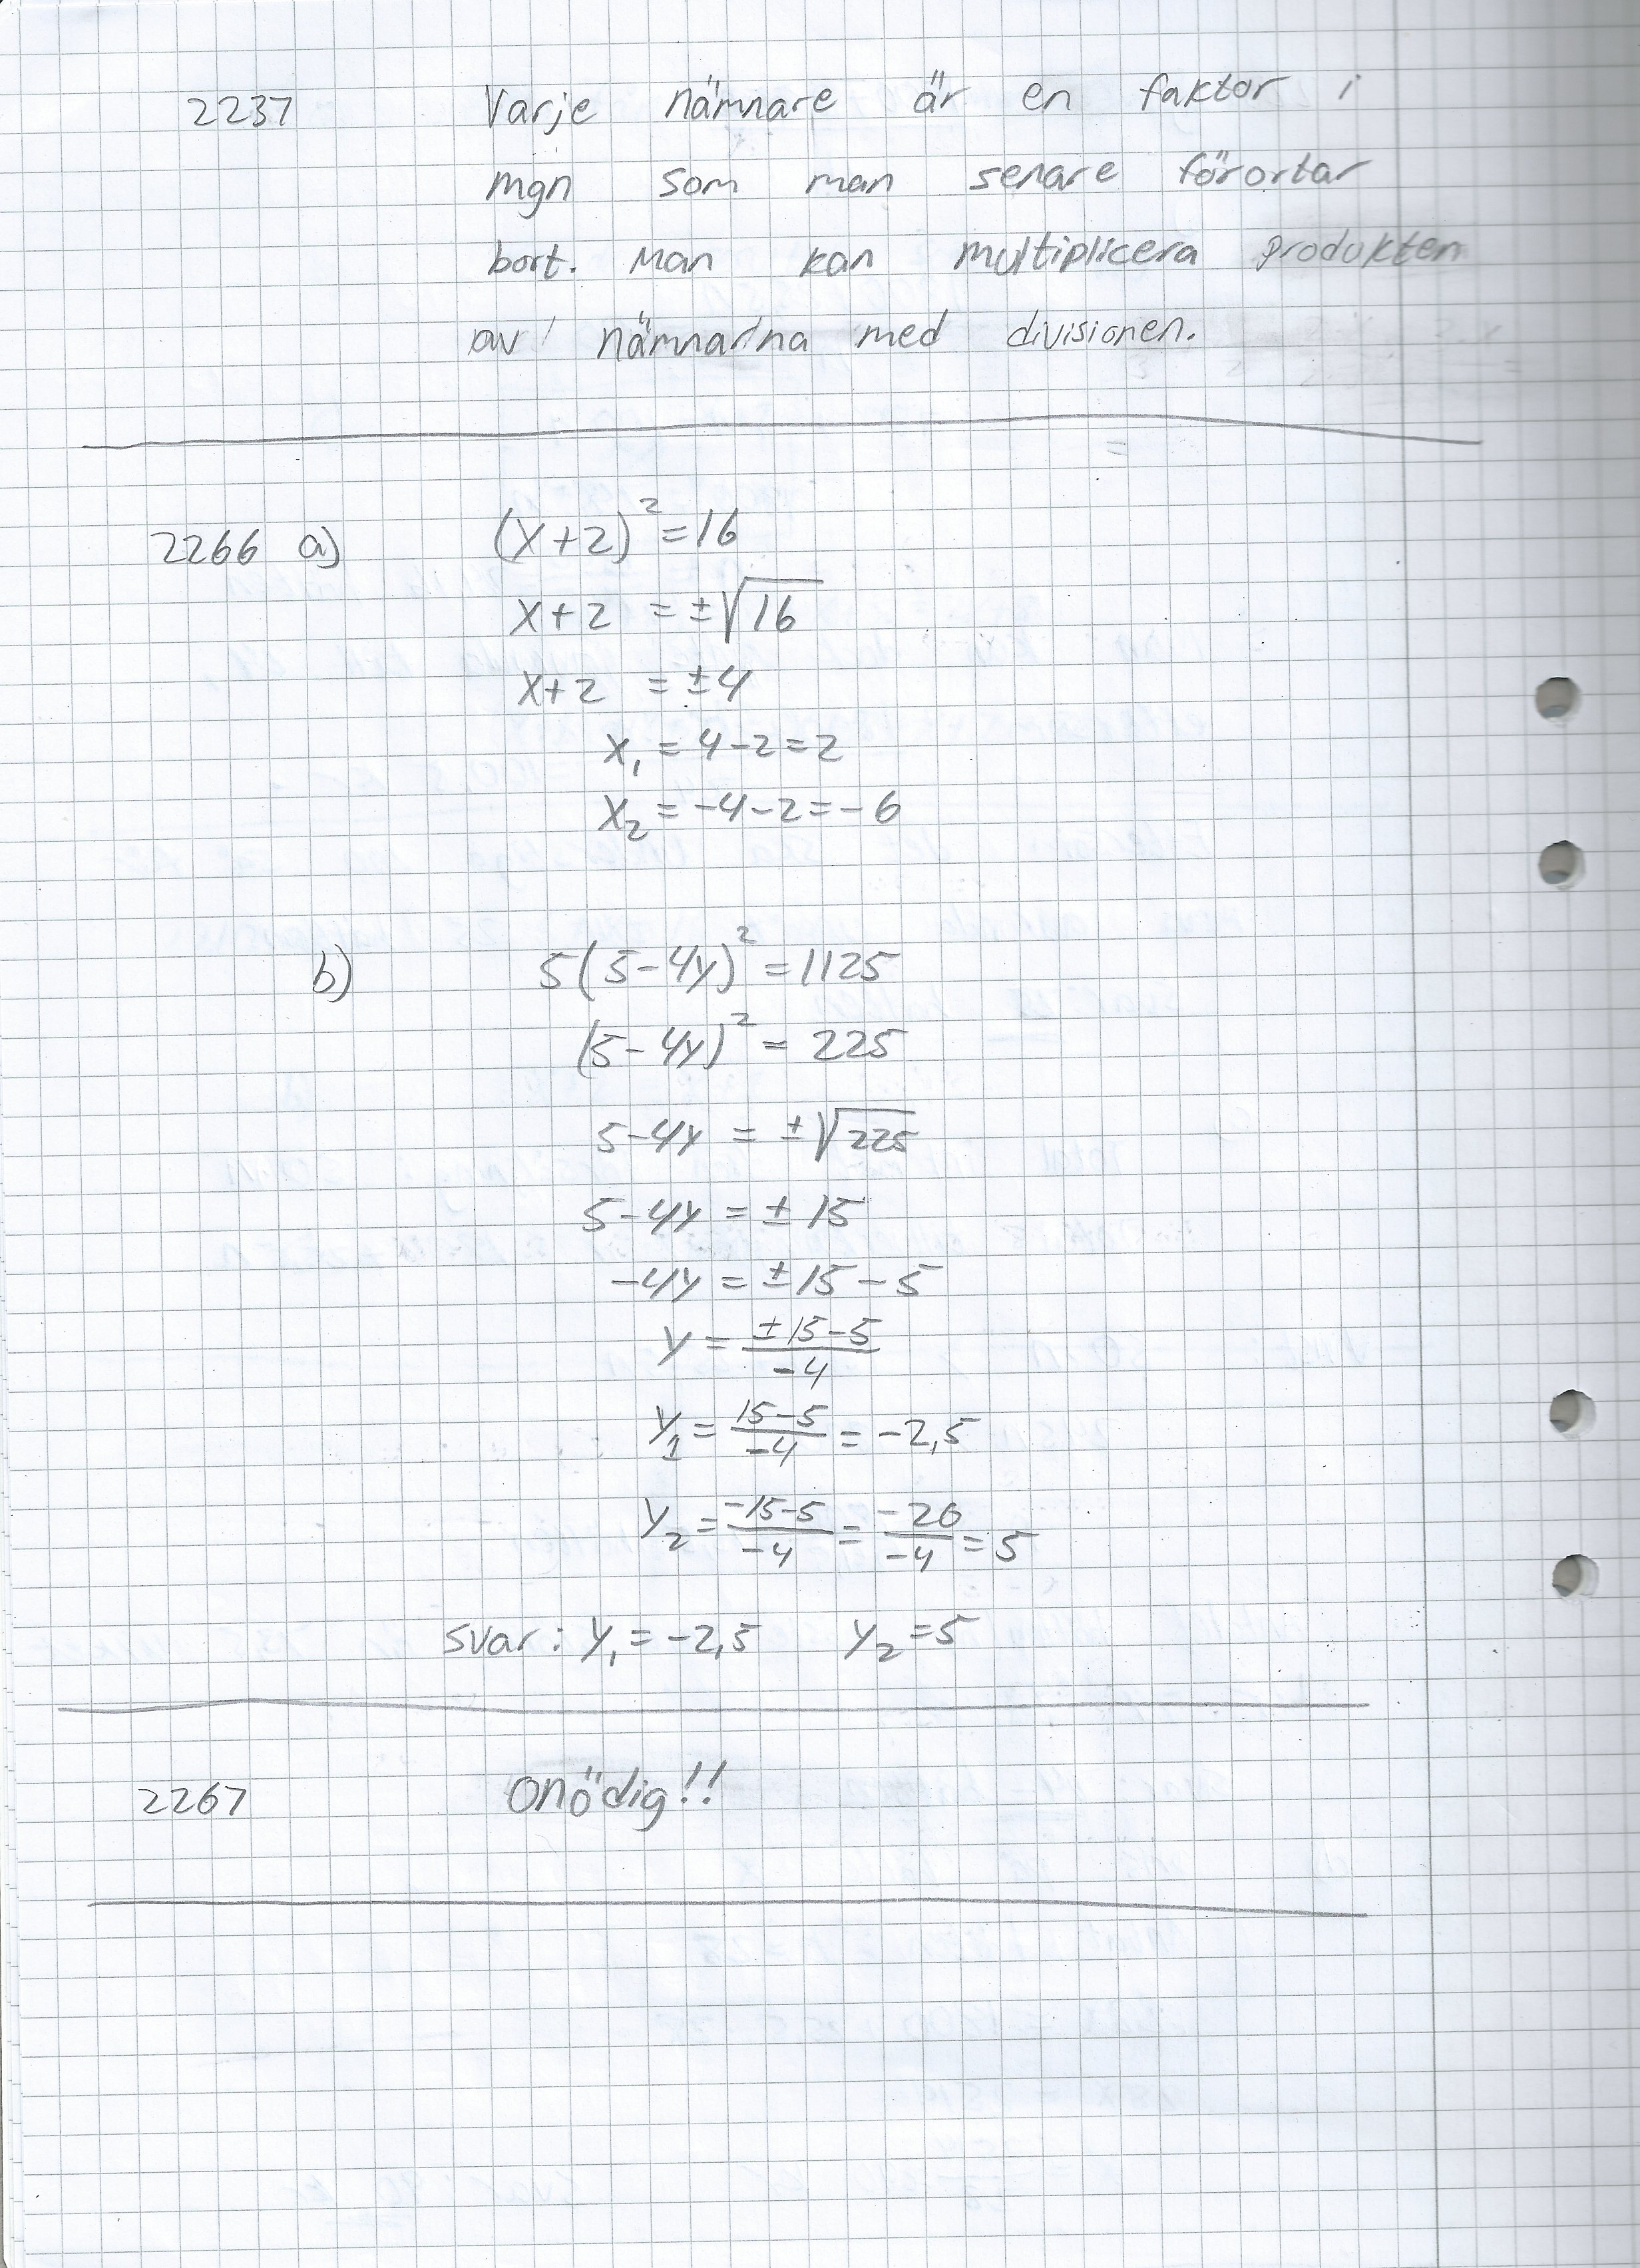 2237 Varje nämnare är en faktor i
mgn som man senare förortar
bort. Man kan multiplicera produkten
av nämnarna med divisionen.
2266 a) (x+2)² = 16
x+2 = ±√16
x+2 = ±4
x₁ = 4-2=2
x₂ = -4-2=-6
b) 5(5-4y)² = 1125
(5-4y)² = 225
5-4y = ±√225
5-4y = ±15
-4y = ±15-5
y = (±15-5)/-4
y₁ = (15-5)/-4 = -2,5
y₂ = (-15-5)/-4 = -20/-4 = 5
svar: y₁ = -2,5 y₂ = 5
2267 onödig!!